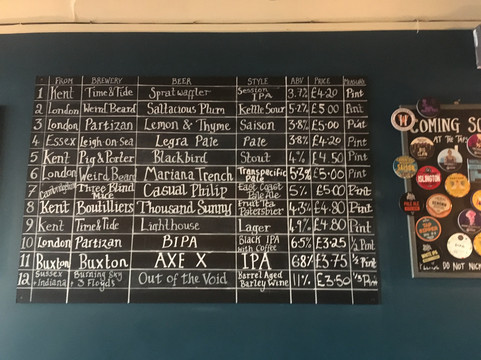 FROM BREWERY BEER STYLE ABV PRICE MEASURE
1 Kent Time & Tide Spratwaffler Session IPA 3.7% £4.20 Pint
2 London Weird Beard Sallacious Plum Kettle Sour 5.2% £5.00 Pint
3 London Partizan Lemon & Thyme Saison 3.8% £5.00 Pint
4 Essex Leigh-on-Sea Legra Pale Pale 3.8% £4.20 Pint
5 Kent Pig & Porter Blackbird Stout 4% £4.50 Pint
6 London Weird Beard Mariana Trench Transpecific Pale 5.3% £5.00 Pint
7 Three Blind Mice Casual Philip East Coast Pale Ale 5% £5.00 Pint
8 Kent Boutilliers Thousand Sunny Fruit Tea 4.3% £4.80 Pint
9 Kent Time & Tide Lighthouse Lager 4.9% £4.80 Pint
10 London Partizan BIPA Black IPA with Coffee 6.5% £3.25 ½ Pint
11 Buxton Buxton AXE X IPA 6.8% £3.75 ½ Pint
12 Sussex + Indiana Burning Sky + 3 Floyds Out of the Void Barrel Aged Barley Wine 11% £3.50 ⅓ Pint
COMING SO
AT THE TA
ISLINGTON
PLEASE DO NOT NICK